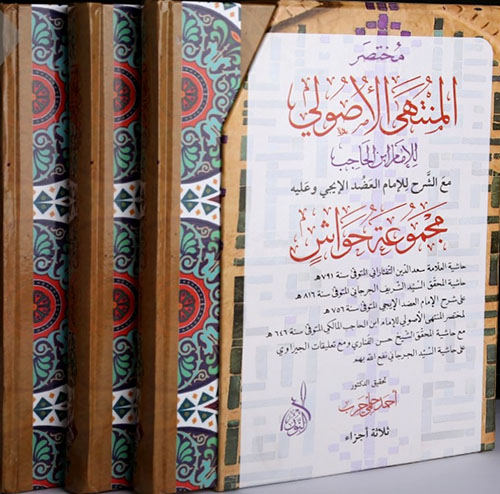 مختصر
المنتهى الأصولي
للإمام ابن الحاجب
مع الشرح للإمام العضد الإيجي وعليه
مجموعة حواش
حاشية العلامة سعد الدين التفتازاني المتوفى سنة ٧٩١ هـ
حاشية المحقق السيد الشريف الجرجاني المتوفى سنة ٨١٦ هـ
على شرح الإمام العضد الإيجي المتوفى سنة ٧٥٦ هـ
لمختصر المنتهى الأصولي للإمام ابن الحاجب المالكي المتوفى سنة ٦٤٦ هـ
مع حاشية المحقق الشيخ حسن الفناري ومع تعليقات الجيزاوي
على حاشية السيد الجرجاني نفع الله بهم
تحقيق الدكتور
ثلاثة أجزاء